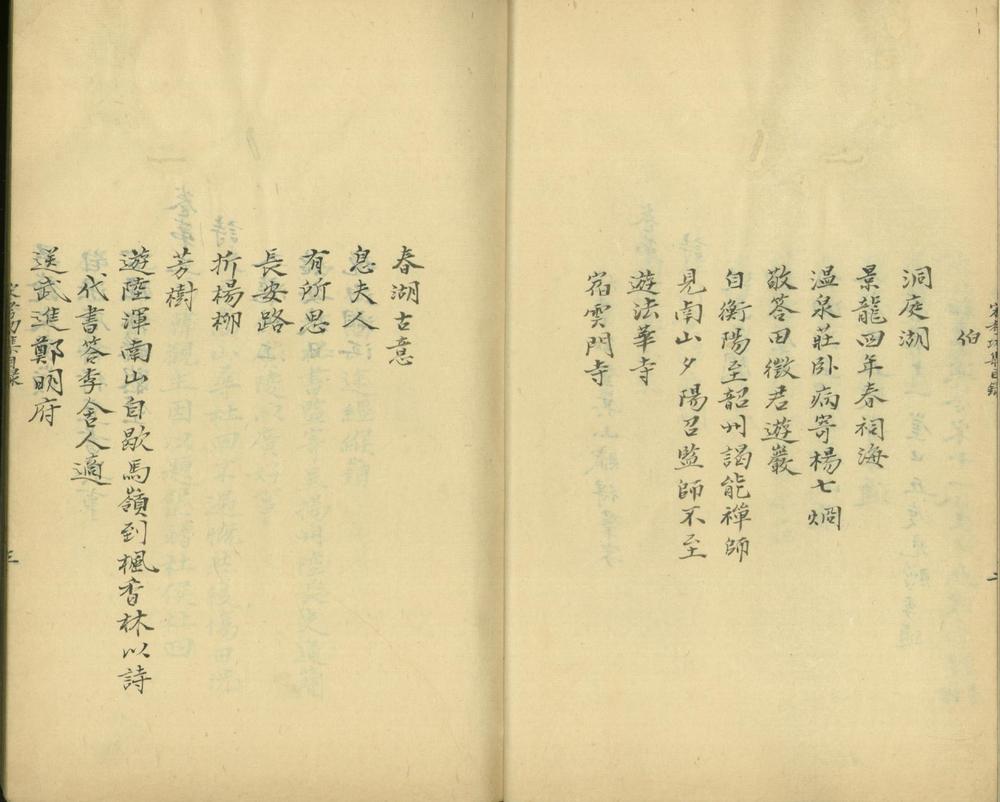 伯
洞庭湖
景龍四年春祠海
温泉莊卧病寄楊七烱
敬答田徵君遊巖
自衡陽至韶州謁能禅師
見南山夕陽召監師不至
遊法華寺
宿雲門寺
二
春湖古意
息夫人
有所思
長安路
折楊柳
芳樹
遊陸渾南山自歇馬嶺到楓香林以詩
代書答李舍人適
送武進鄭明府
三